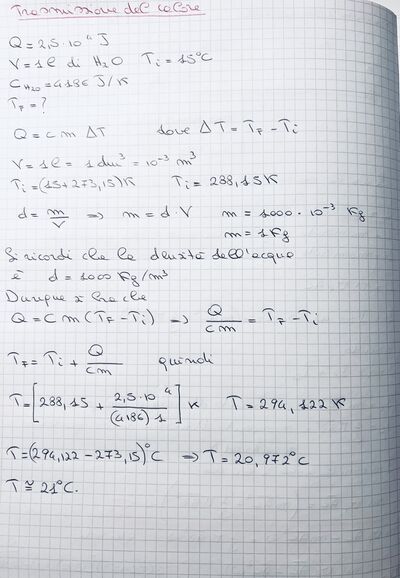 Trasmissione del calore
Q = 2,5 · 10⁴ J
V = 1l di H₂O Tᵢ = 15°C
C_H₂O = 4186 J/K
T_F = ?
Q = c m ΔT dove ΔT = T_F - Tᵢ
V = 1l = 1 dm³ = 10⁻³ m³
Tᵢ = (15 + 273,15)K Tᵢ = 288,15K
d = m/V ⇒ m = d · V m = 1000 · 10⁻³ Kg
m = 1 Kg
Si ricordi che la densità dell'acqua
è d = 1000 Kg/m³
Dunque si ha che
Q = C m (T_F - Tᵢ) ⇒ Q/cm = T_F - Tᵢ
T_F = Tᵢ + Q/cm quindi
T = [288,15 + 2,5 · 10⁴/(4186) 1] K T = 294,122 K
T = (294,122 - 273,15)°C ⇒ T = 20,972°C
T ≅ 21°C.